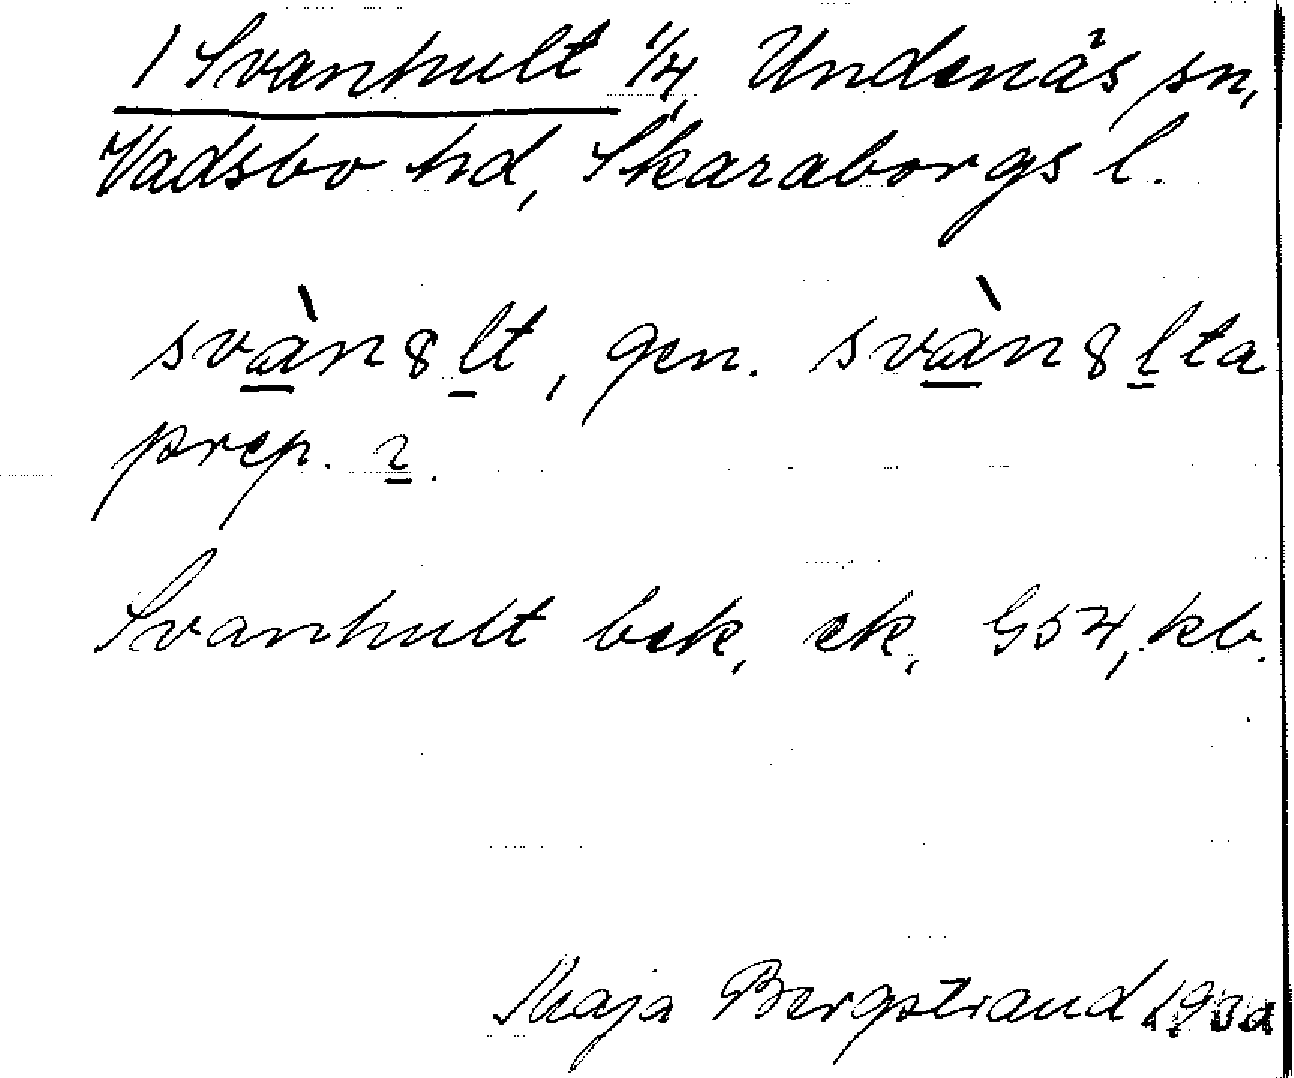 1 Svanhult 1/4, Undenäs sn,
Vadsbo hd, Skaraborgs l.
svàn8lt, gen. svàn8lta
prep. ɩ.
Svanhult bek, ek, G54, kb.
Maja Bergstrand